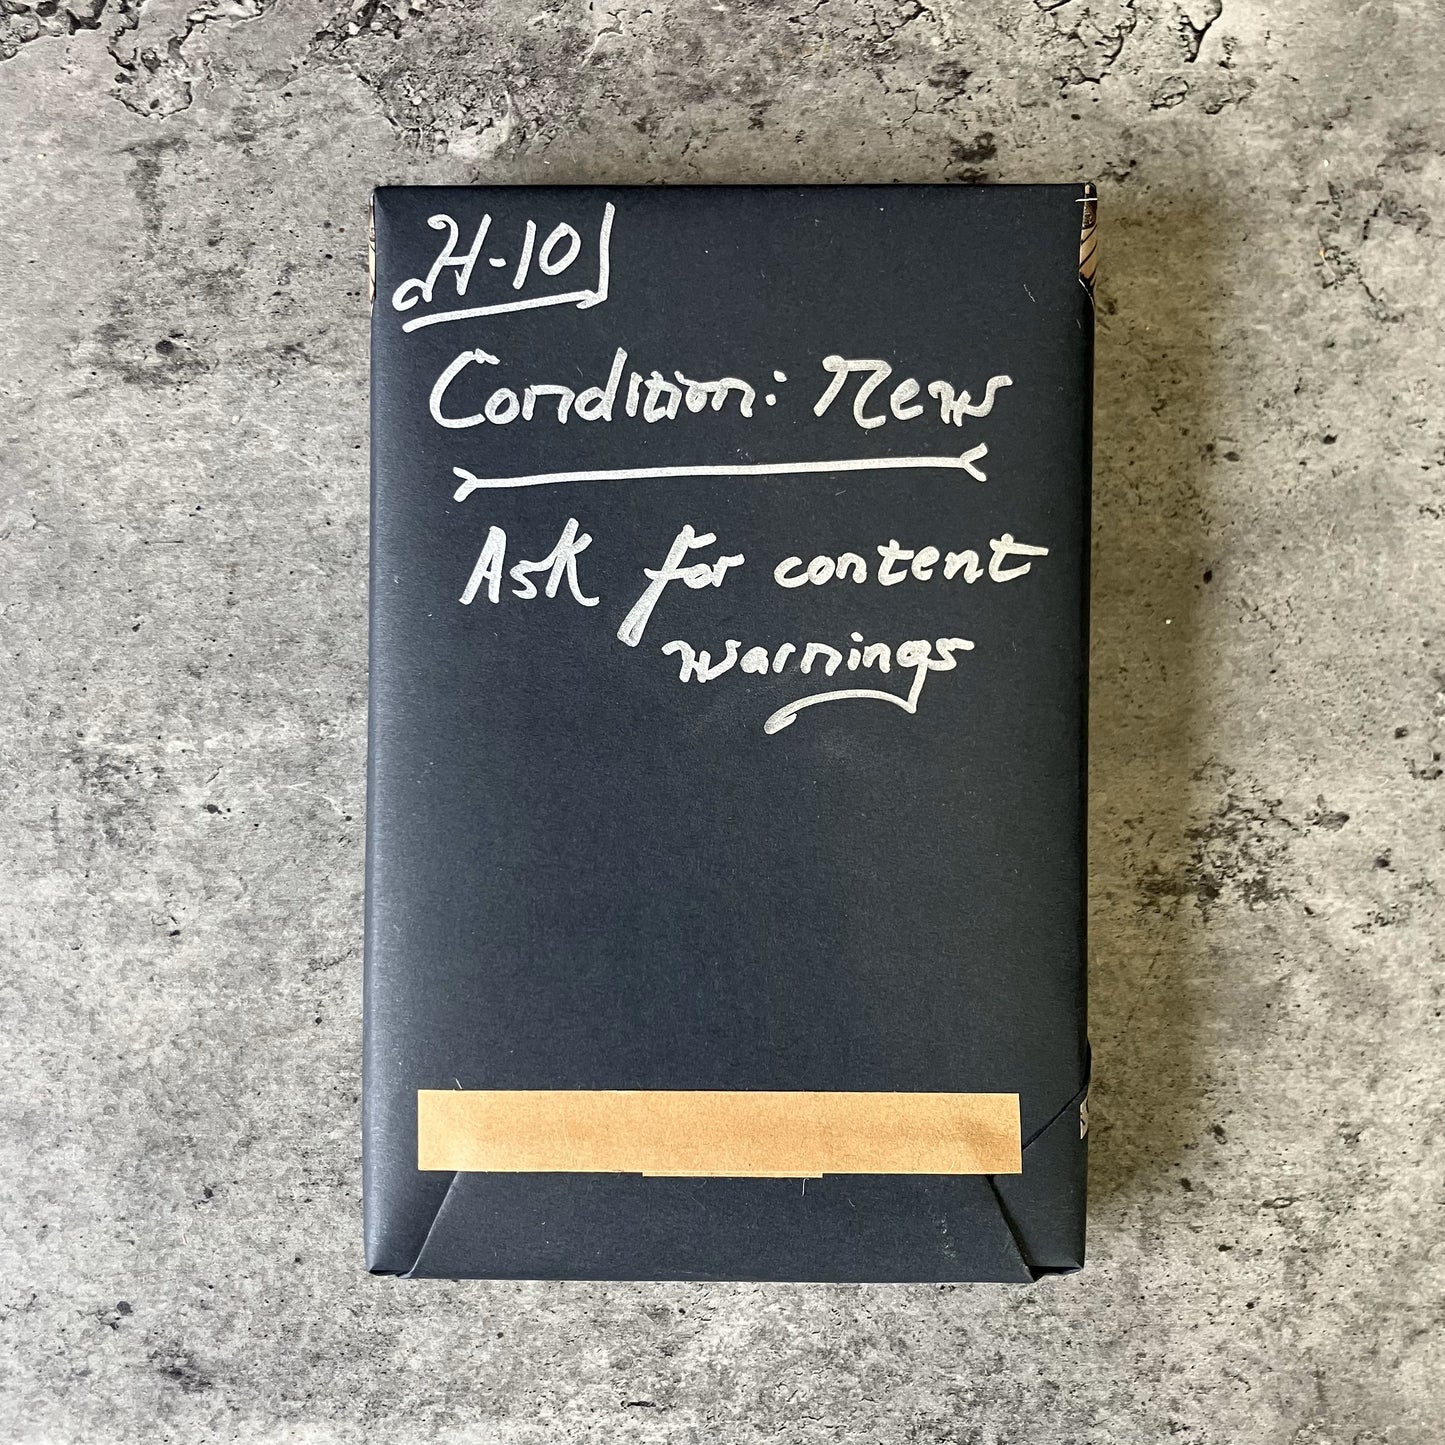 H-10
Condition: New
Ask for content
warnings